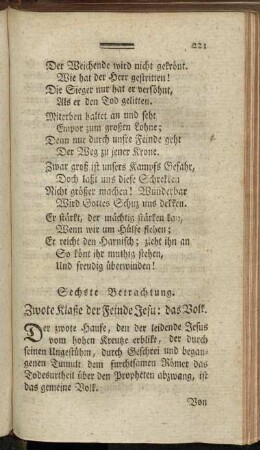 221
Der Weichende wird nicht gekrönt.
Wie hat der Herr gestritten!
Die Sieger nur hat er versöhnt,
Als er den Tod gelitten.
Miterben haltet an und seht
Empor zum großen Lohne;
Denn nur durch unsre Feinde geht
Der Weg zu jener Krone.
Zwar groß ist unsers Kampfs Gefahr,
Doch laßt uns diese Schrekken
Nicht größer machen! Wunderbar
Wird Gottes Schuz uns dekken.
Er stärkt, der mächtig stärken kan,
Wenn wir um Hülfe flehen;
Er reicht den Harnisch; zieht ihn an
So könt ihr muthig stehen,
Und freudig überwinden!
Sechste Betrachtung.
Zwote Klaße der Feinde Jesu: das Volk.
Der zwote Haufe, den der leidende Jesus
vom hohen Kreutze erblikt, der durch
seinen Ungestühm, durch Geschrei und began-
genen Tumult dem furchtsamen Römer das
Todesurtheil über den Propheten abzwang, ist
das gemeine Volk.
Von